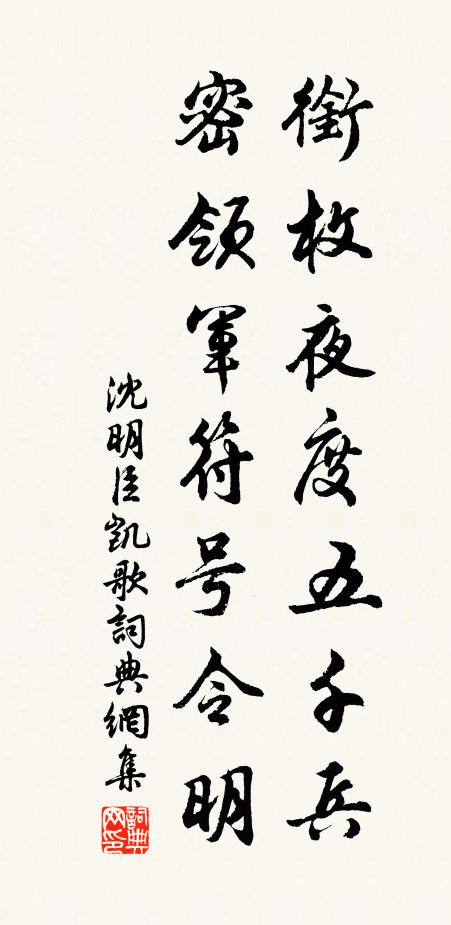 銜枚夜度五千兵
密領軍符号令明
沈明臣凱歌詞典網集
詞典網印